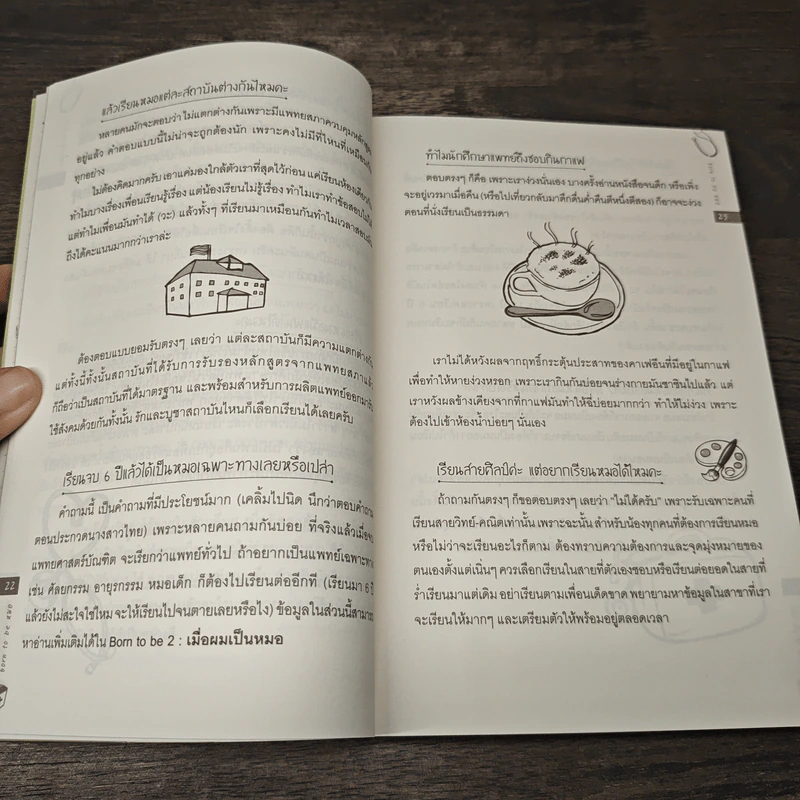 แล้วเรียนหมอแต่ละสถาบันต่างกันไหมคะ
หลายคนมักจะตอบว่าไม่แตกต่างกันเพราะมีแพทยสภาควบคุมหลักสูตร
อยู่แล้ว คำตอบแบบนี้ไม่น่าจะถูกต้องนัก เพราะคงไม่มีที่ไหนที่เหมือนกัน
ทุกอย่าง
ไม่ต้องคิดมากครับ เอาแค่มองใกล้ตัวเราที่สุดไว้ก่อน แค่เรียนห้องเดียวกัน
ทำไมบางเรื่องเพื่อนเรียนรู้เรื่อง แต่น้องเรียนไม่รู้เรื่อง ทำไมเราทำข้อสอบไม่
แต่ทำไมเพื่อนมันทำได้ (วะ) แล้วทั้งๆ ที่เรียนมาเหมือนกันทำไมเวลาสอบ
ถึงได้คะแนนมากกว่าเราล่ะ
ต้องตอบแบบยอมรับตรงๆ เลยว่า แต่ละสถาบันก็มีความแตกต่างกัน
แต่ทั้งนี้ทั้งนั้นสถาบันที่ได้รับการรับรองหลักสูตรจากแพทยสภาแล้ว
ก็ถือว่าเป็นสถาบันที่ได้มาตรฐาน และพร้อมสำหรับการผลิตแพทย์ออกมารับ
ใช้สังคมด้วยกันทั้งนั้น รักและบูชาสถาบันไหนก็เลือกเรียนได้เลยครับ
เรียนจบ 6 ปีแล้วได้เป็นหมอเฉพาะทางเลยหรือเปล่า
คำถามนี้ เป็นคำถามที่มีประโยชน์มาก (เคลิ้มไปนิด นึกว่าตอบคำถาม
ตอนประกวดนางสาวไทย) เพราะหลายคนถามกันบ่อย ที่จริงแล้วเมื่อจบ
แพทยศาสตร์บัณฑิต จะเรียกว่าแพทย์ทั่วไป ถ้าอยากเป็นแพทย์เฉพาะทาง
เช่น ศัลยกรรม อายุรกรรม หมอเด็ก ก็ต้องไปเรียนต่ออีกที (เรียนมา 6 ปี
แล้วยังไม่สะใจใช่ไหม จะให้เรียนไปจนตายเลยหรือไง) ข้อมูลในส่วนนี้สามารถ
หาอ่านเพิ่มเติมได้ใน Born to be 2 : เมื่อผมเป็นหมอ
22
born to be หมอ
ทำไมนักศึกษาแพทย์ถึงชอบกินกาแฟ
ตอบตรงๆ ก็คือ เพราะเราง่วงนั่นเอง บางครั้งอ่านหนังสือจนดึก หรือเพิ่ง
จะอยู่เวรมาเมื่อคืน (หรือไปเที่ยวกลับมาดึกดื่นค่ำคืนตีหนึ่งตีสอง) ก็อาจจะง่วง
ตอนที่นั่งเรียนเป็นธรรมดา
เราไม่ได้หวังผลจากฤทธิ์กระตุ้นประสาทของคาเฟอีนที่มีอยู่ในกาแฟ
เพื่อทำให้หายง่วงหรอก เพราะเรากินกันบ่อยจนร่างกายมันชาชินไปแล้ว แต่
เราหวังผลข้างเคียงจากที่กาแฟมันทำให้ฉี่บ่อยมากกว่า ทำให้ไม่ง่วง เพราะ
ต้องไปเข้าห้องน้ำบ่อยๆ นั่นเอง
เรียนสายศิลป์ค่ะ แต่อยากเรียนหมอได้ไหมคะ
ถ้าถามกันตรงๆ ก็ขอตอบตรงๆ เลยว่า “ไม่ได้ครับ” เพราะรับเฉพาะคนที่
เรียนสายวิทย์-คณิตเท่านั้น เพราะฉะนั้น สำหรับน้องทุกคนที่ต้องการเรียนหมอ
หรือไม่ว่าจะเรียนอะไรก็ตาม ต้องทราบความต้องการและจุดมุ่งหมายของ
ตนเองตั้งแต่เนิ่นๆ ควรเลือกเรียนในสายที่ตัวเองชอบหรือเรียนต่อยอดในสายที่
ร่ำเรียนมาแต่เดิม อย่าเรียนตามเพื่อนเด็ดขาด พยายามหาข้อมูลในสาขาที่เรา
จะเรียนให้มากๆ และเตรียมตัวให้พร้อมอยู่ตลอดเวลา
23